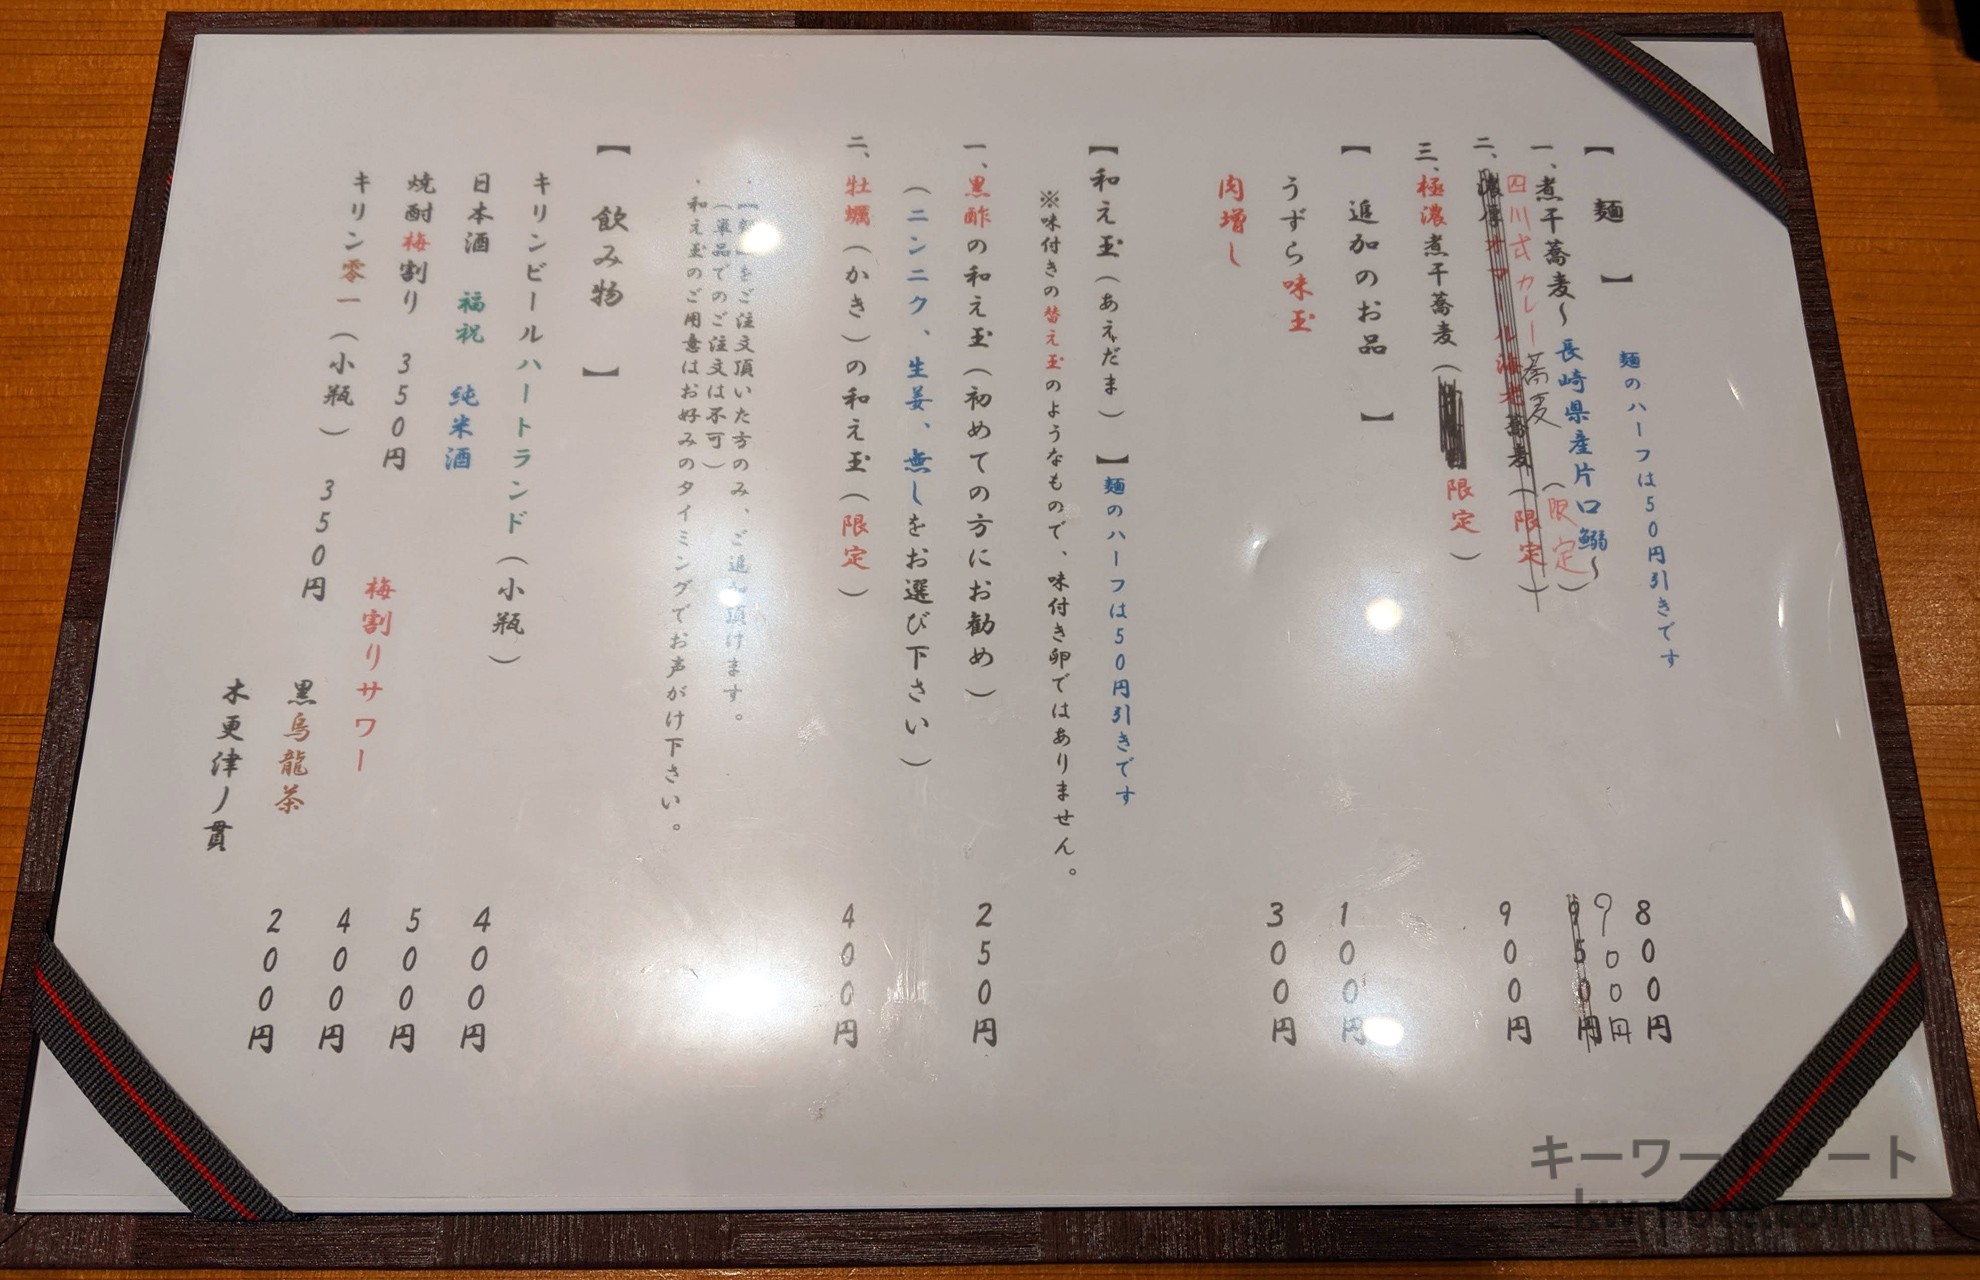 【麺】 麺のハーフは50円引きです
一、煮干蕎麦〜長崎県産片口鰯〜 800円
四川式カレー蕎麦（限定） 900円
二、濃厚オマール海老蕎麦（限定） 950円
三、極濃煮干蕎麦（限定） 900円
【追加のお品】
うずら味玉 100円
肉増し 300円
【和え玉（あえだま）】麺のハーフは50円引きです
※味付きの替え玉のようなもので、味付き卵ではありません。
一、黒酢の和え玉（初めての方にお勧め） 250円
（ニンニク、生姜、無しをお選び下さい）
二、牡蠣（かき）の和え玉（限定） 400円
をご注文頂いた方のみ、ご追加頂けます。
（単品でのご注文は不可）
・和え玉のご用意はお好みのタイミングでお声がけ下さい。
【飲み物】
キリンビールハートランド（小瓶） 400円
日本酒 福祝 純米酒 500円
焼酎梅割り 350円 梅割りサワー 400円
キリン零一（小瓶） 350円 黒烏龍茶 200円
木更津ノ貫
キーワードノート